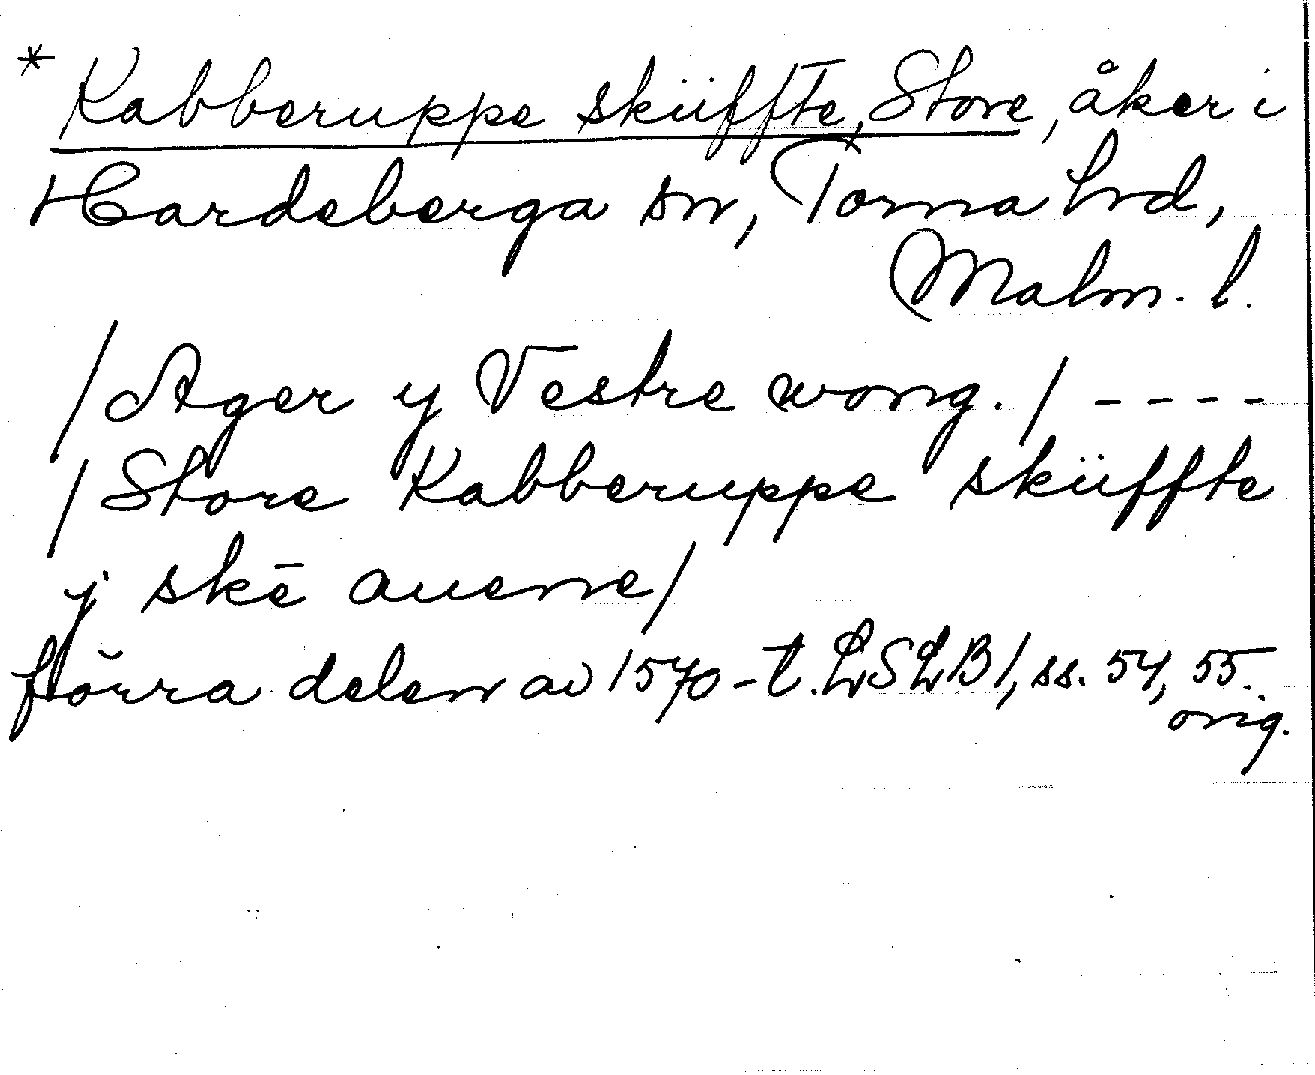 * Kabberuppe sküffte, Store, åker i
Hardeberga sn, Torna hd,
Malm. l.
/Ager y Vestre wong./ ----
/Store Kabberuppe sküffte
y skē auene/
förra delen av 1570-t. LSLB 1, ss. 54, 55.
orig.